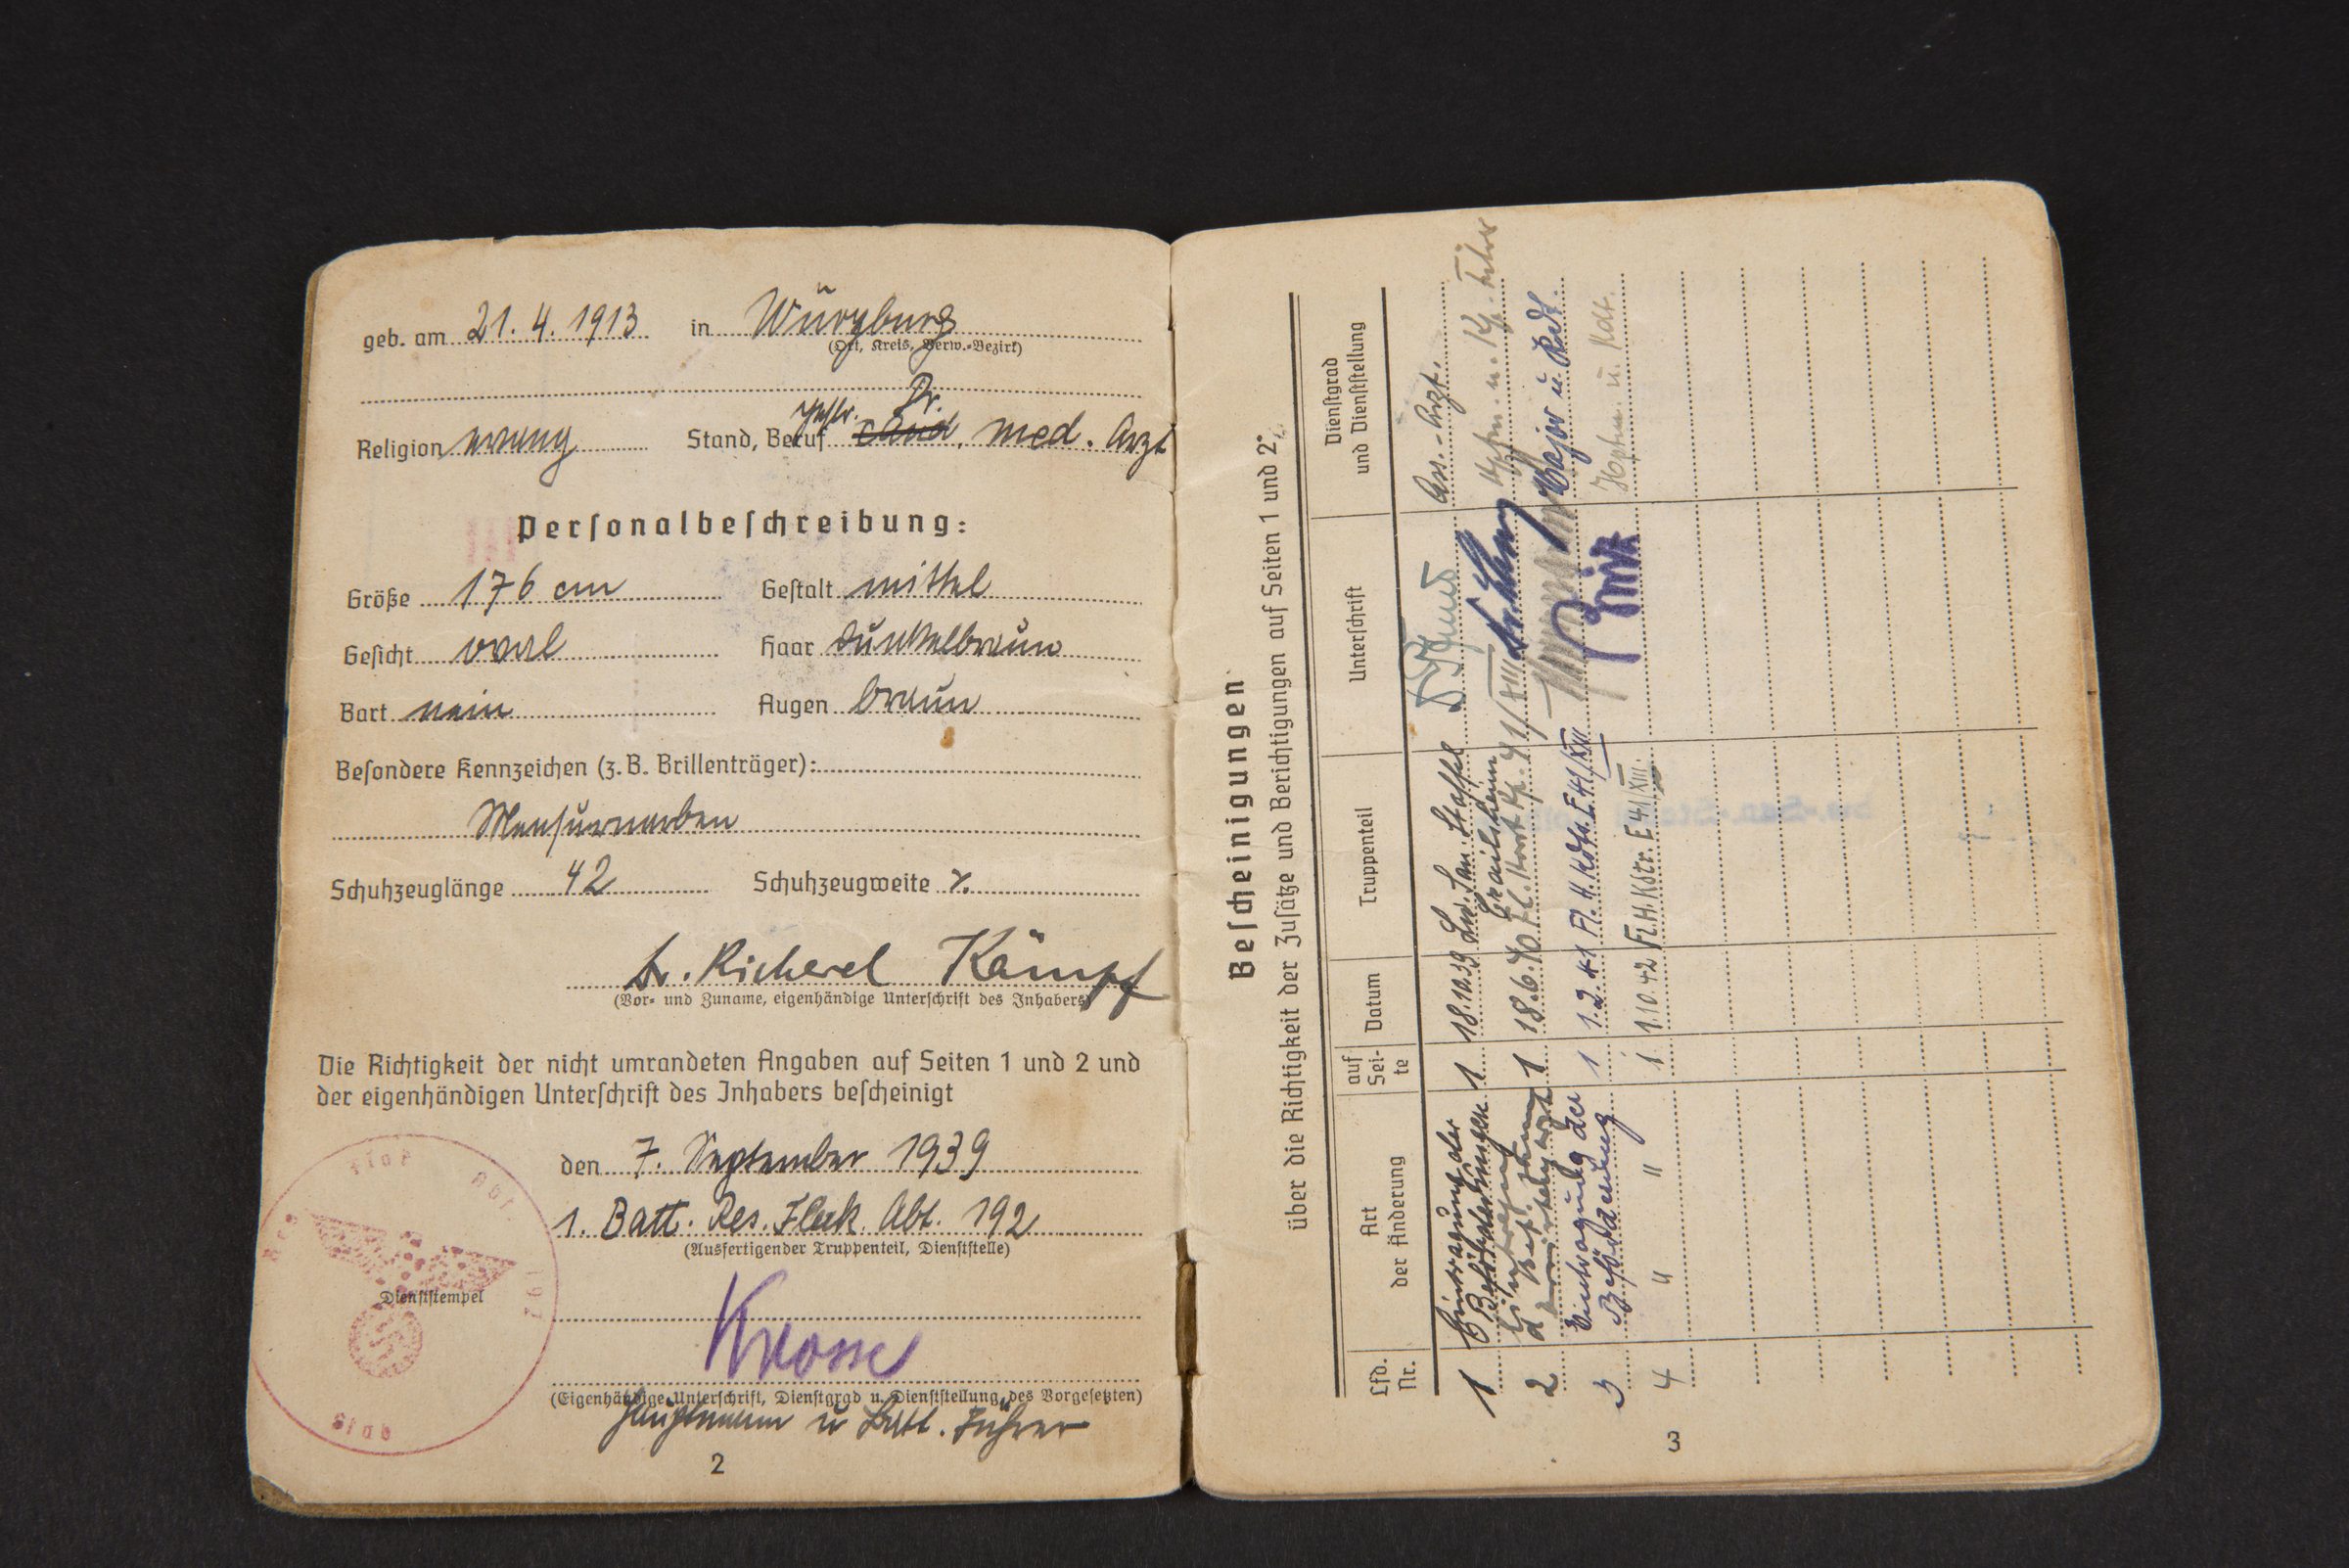 geb. am 21. 4. 1913 in Würzburg
(Ort, Kreis, Verw.-Bezirk)
Dr.
Religion evang Stand, Beruf cand. med. Arzt
Personalbeschreibung:
Größe 176 cm Gestalt mittel
Gesicht oval Haar dunkelbraun
Bart nein Augen braun
Besondere Kennzeichen (z. B. Brillenträger):
Mensurnarben
Schuhzeuglänge 42 Schuhzeugweite
Dr. Richard Kämpf
(Vor- und Zuname, eigenhändige Unterschrift des Inhabers)
Die Richtigkeit der nicht umrandeten Angaben auf Seiten 1 und 2 und
der eigenhändigen Unterschrift des Inhabers bescheinigt
den 7. September 1939
1. Batt. Res. Flak. Abt. 192
(Ausfertigender Truppenteil, Dienststelle)
Res. Flak Abt. 192
Stab
Dienststempel
(Eigenhändige Unterschrift, Dienstgrad u. Dienststellung des Vorgesetzten)
Hauptmann u Batt. Führer
2
Bescheinigungen
über die Richtigkeit der Zusätze und Berichtigungen auf Seiten 1 und 2
Lfd. Nr.
Art der Änderung
auf Sei-te
Datum
Truppenteil
Unterschrift
Dienstgrad und Dienststellung
1 Eintragung der Beförderungen 1 18.10.39 Lw. San. Staffel Crailsheim Ass.-Arzt.
2 1 18.6.40 Hptm. u. Kp.
3 Eintragung der Beförderung 1 1.2.41 Fl. H. Kdtr. E 41/XIII Major u. Kdt.
4 " " 1 1.10.42 Fl. H. Kdtr. E 41/XIII. Hptm. u. Kdt.
3